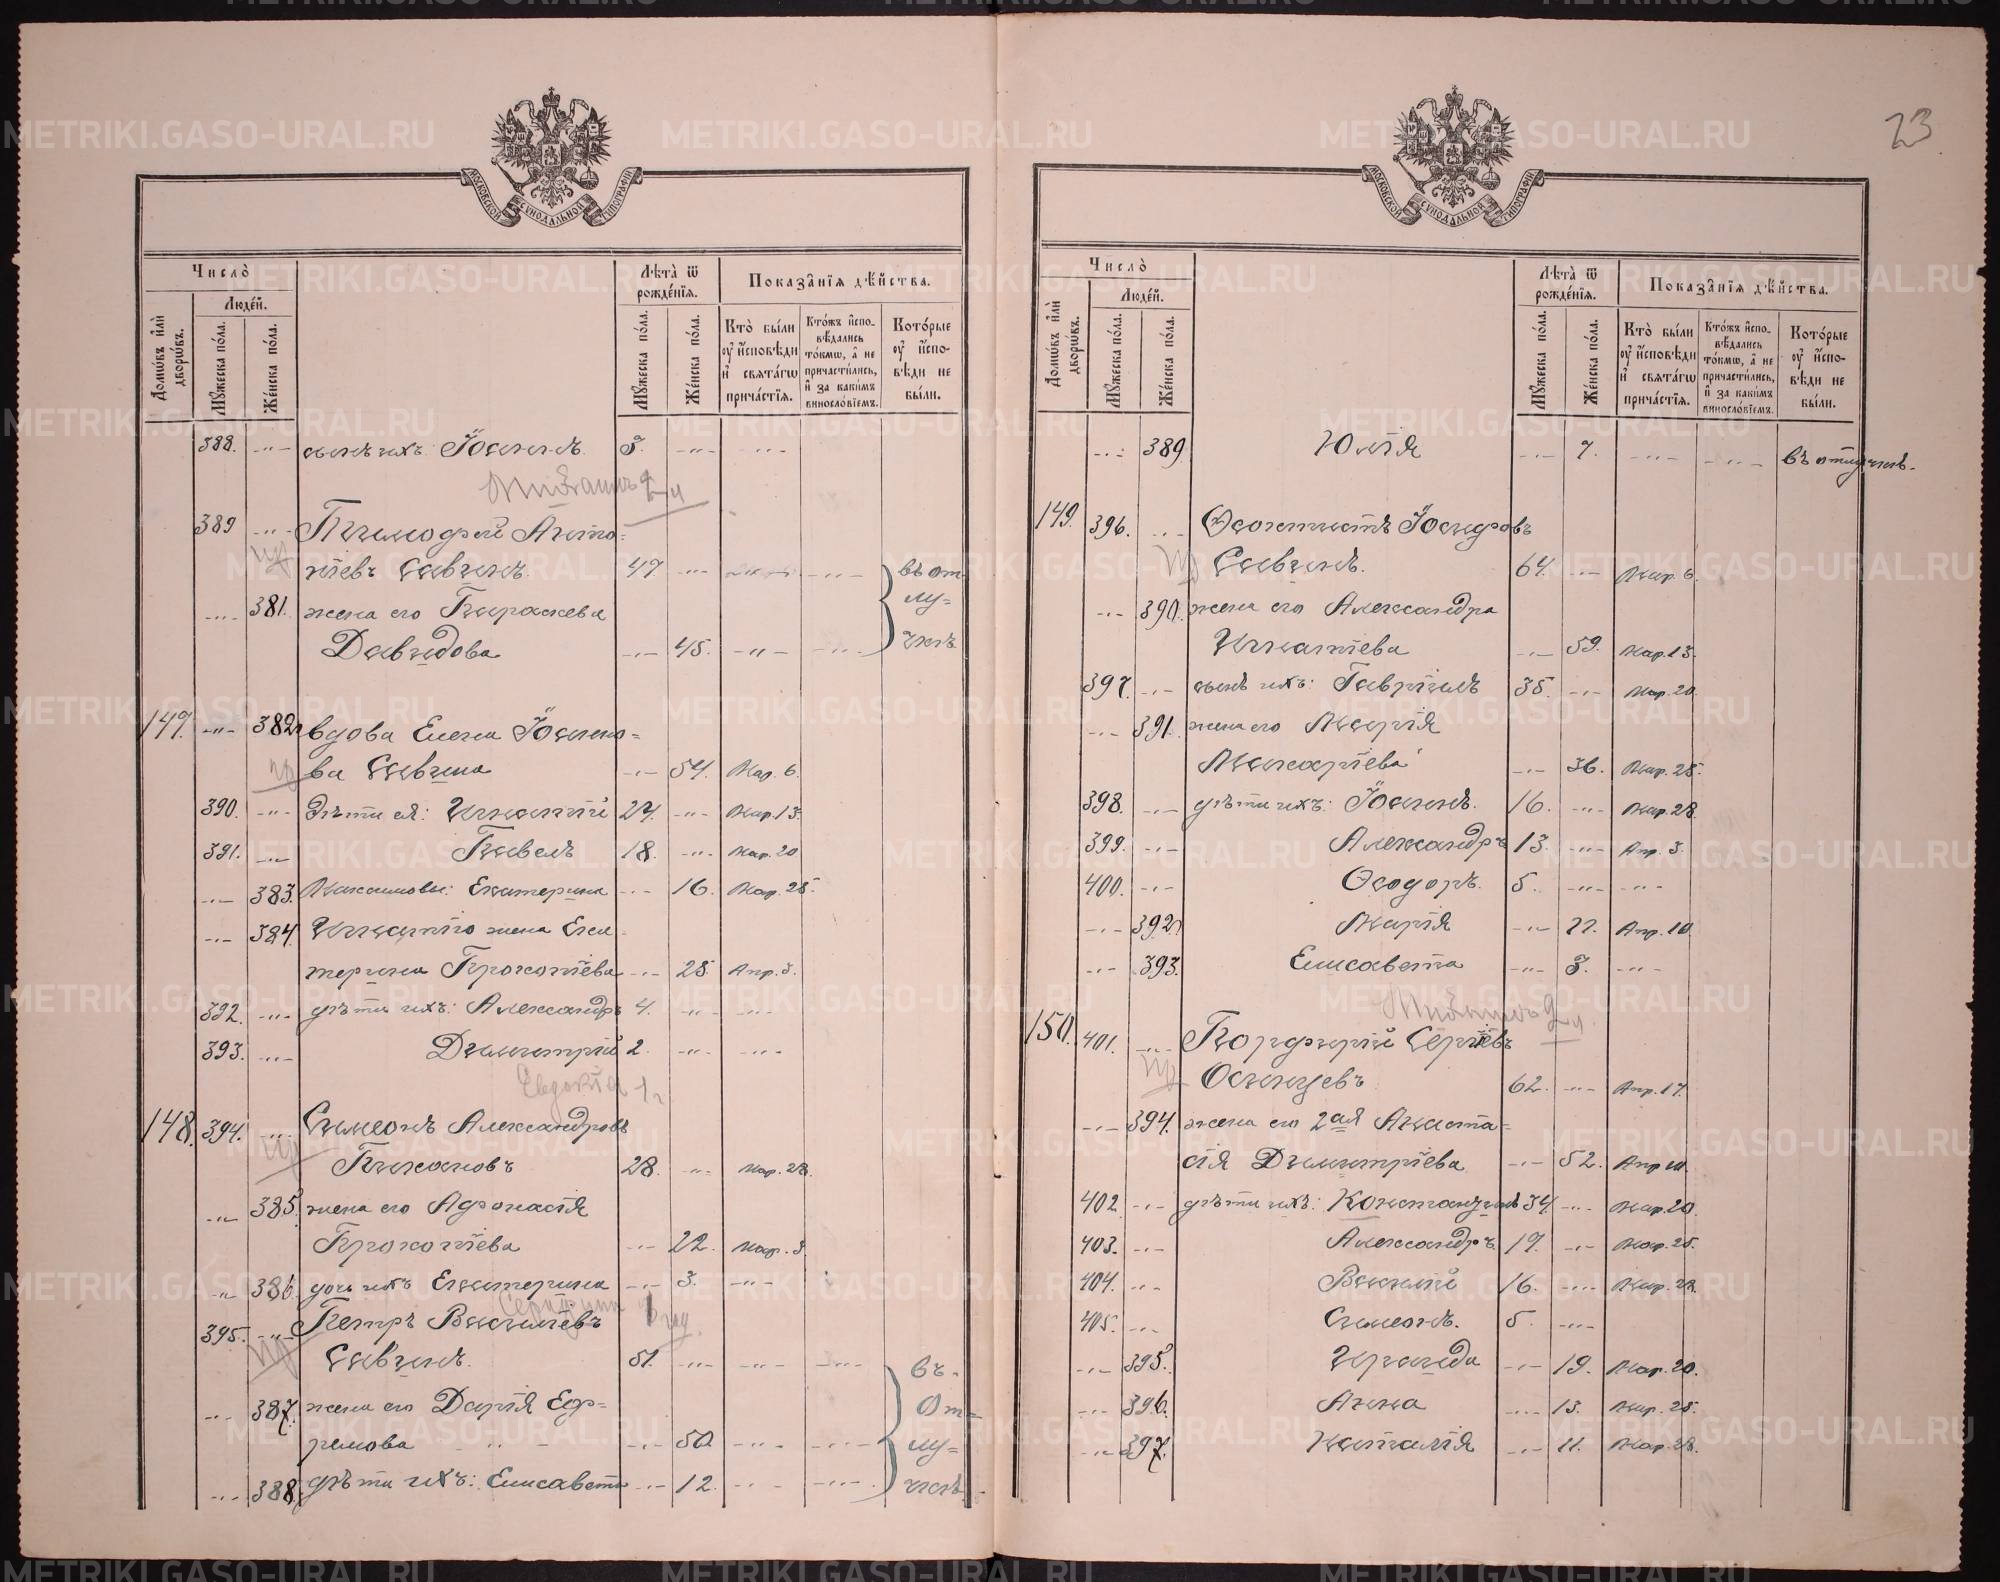 23
МОСКОВСКОЙ СѴНОДАЛЬНОЙ ТИПОГРАФІИ
Число̀
Людей.
Домѡвъ и҆лѝ дворѡвъ.
Мꙋжеска по́ла.
Же́нска по́ла.
Лѣта̀ ѿ рожде́нїѧ.
Мꙋжеска по́ла.
Же́нска по́ла.
Показа̑нїѧ дѣ́йства.
Кто̀ бы́ли оу҆ и҆́сповѣди и҆ свѧта́гѡ прича́стїѧ.
Кто́жъ и҆спо-вѣдались то́кмѡ, а҆ не причасти́лись, и҆ за каки́мъ виносло́вїемъ.
Кото́рые оу҆ и҆́спо-вѣди не бы́ли.
388. -„- сынъ ихъ: Іоаннъ. 3. -„- -„-
389 -„- Тимофей Анто-
ніевъ Савинъ. 47 -„- -„- -„- въ от-
-„- 381. жена его Параскева лу-
Давидова -„- 45. -„- -„- чкѣ.
147. -„- 382 вдова Елена Іоанно-
ва Савина -„- 54. Мар. 6.
390. -„- Дѣти ея: Игнатій 27. -„- Мар. 13.
391. -„- Павелъ 18. -„- Мар. 20
-„- 383. Максимовы: Екатерина -„- 16. Мар. 25.
-„- 384. Игнатію жена Ека-
терина Прокопіева -„- 25. Апр. 3.
392. -„- дѣти ихъ: Александръ 4. -„- -„-
393. -„- Димитрій 2. -„- -„-
Евдокія 1
148. 394. -„- Симеонъ Александровъ
Пихановъ 28. -„- Мар. 28.
-„- 385. жена его Афонасія
Прокопіева -„- 22. Мар. 3.
-„- 386. дочь ихъ Екатерина -„- 3. -„-
395. -„- Петръ Васильевъ
Савинъ. 51. -„- -„- -„- въ
-„- 387. жена его Дарія Еф- от-
ремова -„- 50. -„- -„- лу-
-„- 388. дѣти ихъ: Елисавета -„- 12. -„- -„- чкѣ.
Число̀
Людей.
Домѡвъ и҆лѝ дворѡвъ.
Мꙋжеска по́ла.
Же́нска по́ла.
Лѣта̀ ѿ рожде́нїѧ.
Мꙋжеска по́ла.
Же́нска по́ла.
Показа̑нїѧ дѣ́йства.
Кто̀ бы́ли оу҆ и҆́сповѣди и҆ свѧта́гѡ прича́стїѧ.
Кто́жъ и҆спо-вѣдались то́кмѡ, а҆ не причасти́лись, и҆ за каки́мъ виносло́вїемъ.
Кото́рые оу҆ и҆́спо-вѣди не бы́ли.
-„- 389. Юлія -„- 7. -„- -„- въ отлучкѣ.
149. 396. -„- Ѳеоктистъ Іосифовъ
Савинъ. 64. -„- Мар. 6.
-„- 390. жена его Александра
Игнатіева -„- 59. Мар. 13.
397. -„- сынъ ихъ: Гавріилъ 35. -„- Мар. 20
-„- 391. жена его Марія
Макаріева -„- 36. Мар. 25.
398. -„- дѣти ихъ: Іоаннъ. 16. -„- Мар. 28.
399. -„- Александръ 13. -„- Апр. 3.
400. -„- Ѳеодоръ. 5. -„- -„-
-„- 392. Марія -„- 11. Апр. 10
-„- 393. Елисавета -„- 3. -„-
150. 401. -„- Порфирій Сергіевъ
Осинцевъ 62. -„- Апр. 17.
-„- 394. жена его 2ая Анаста-
сія Димитріева -„- 52. Апр. 10.
402. -„- дѣти ихъ: Константинъ 34. -„- Мар. 20.
403. -„- Александръ 19. -„- Мар. 25.
404. -„- Василій 16. -„- Мар. 28.
405. -„- Симеонъ. 5. -„-
-„- 395. Ираида -„- 19. Мар. 20.
-„- 396. Анна -„- 13. Мар. 25.
-„- 397. Наталія -„- 11. Мар. 28.
METRIKI.GASO-URAL.RU